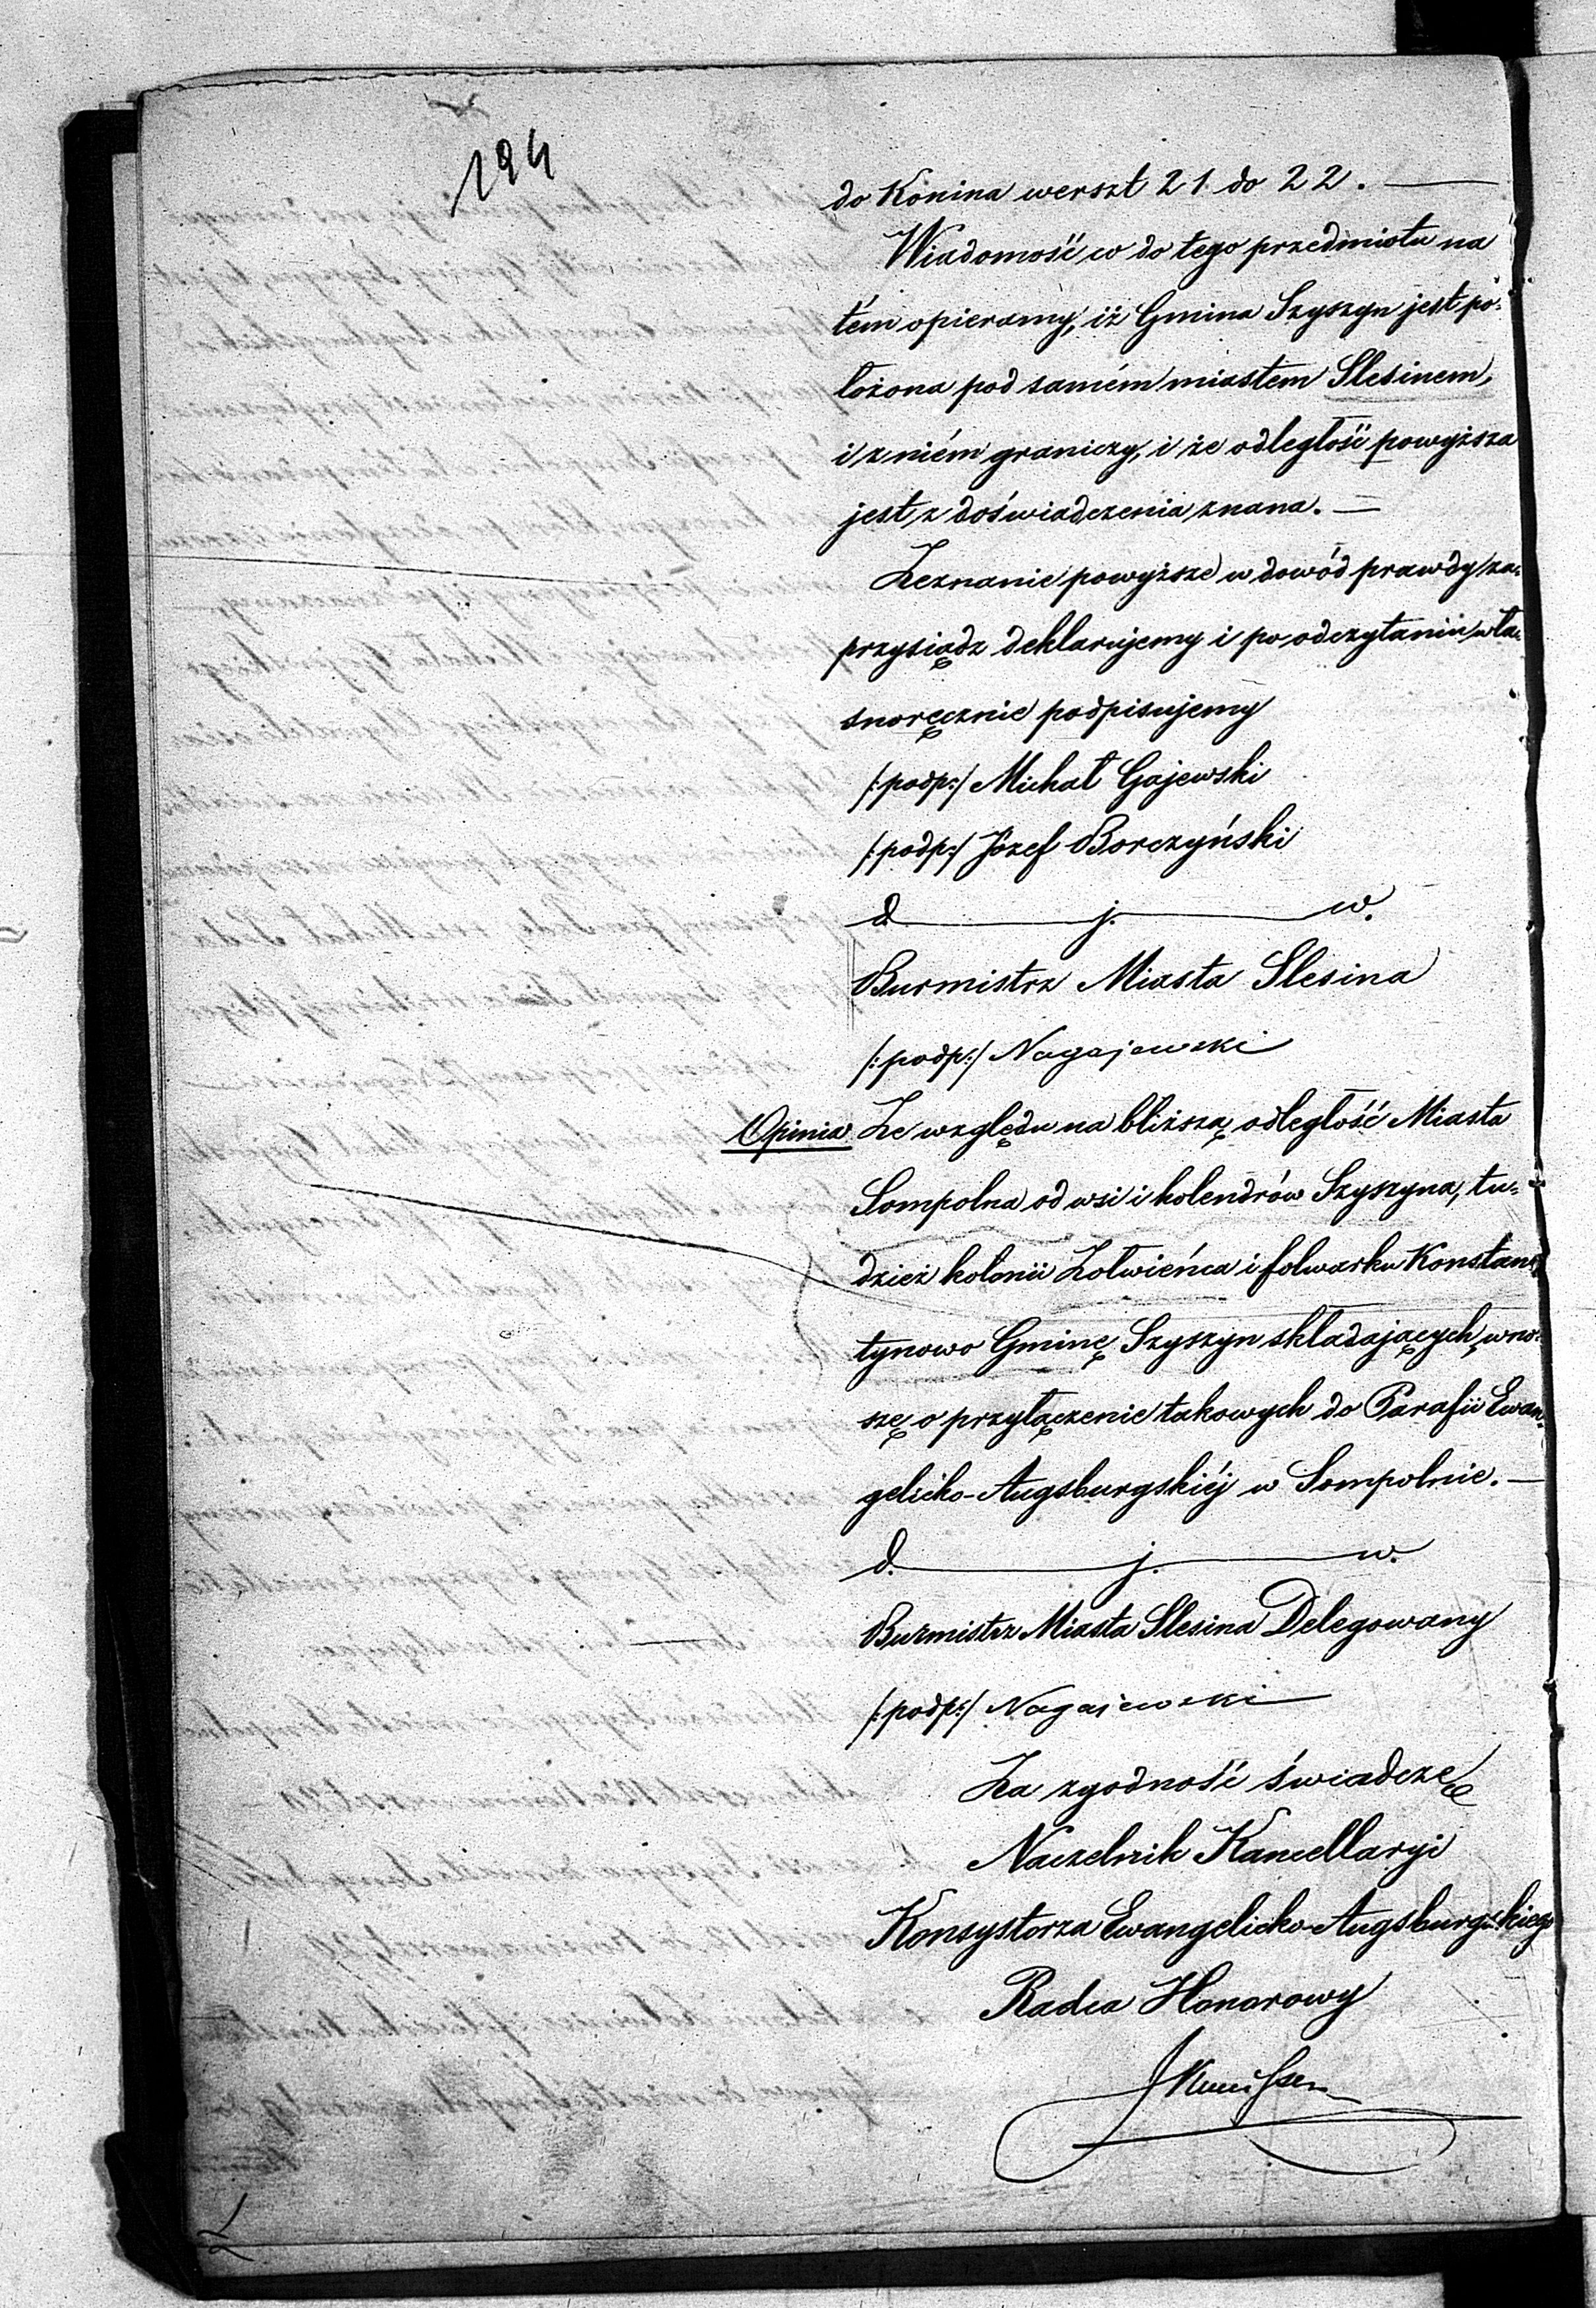 194
do Konina werszt 21 do 22. —
Wiadomość co do tego przedmiotu na
tém opieramy, iż Gmina Szyszyn jest po-
łożona pod samém miastem Slesinem,
i z niém graniczy, i że odległość powyższa
jest z doświadczenia znana. —
Zeznanie powyższe w dowód prawdy za-
przysiądz deklarujemy i po odczytaniu wła-
snoręcznie podpisujemy
/:podp:/ Michał Gajewski
/:podp:/ Józef Borczyński
d. j. w.
Burmistrz Miasta Slesina
/:podp:/ Nagajewski
Opinia Ze względu na bliższą odległość Miasta
Sompolna od wsi i holendrów Szyszyna, tu-
dzież kolonii Zołwieńca i folwarku Konstan-
tynowo Gminę Szyszyn składających, wno-
szę o przyłączenie takowych do Parafii Ewan-
gelicko-Augsburgskiéj w Sompolnie. —
d. j. w.
Burmistrz Miasta Slesina Delegowany
/:podp:/ Nagajewski
Za zgodność świadczę
Naczelnik Kancellaryi
Konsystorza Ewangelicko-Augsburgskiego
Radca Honorowy